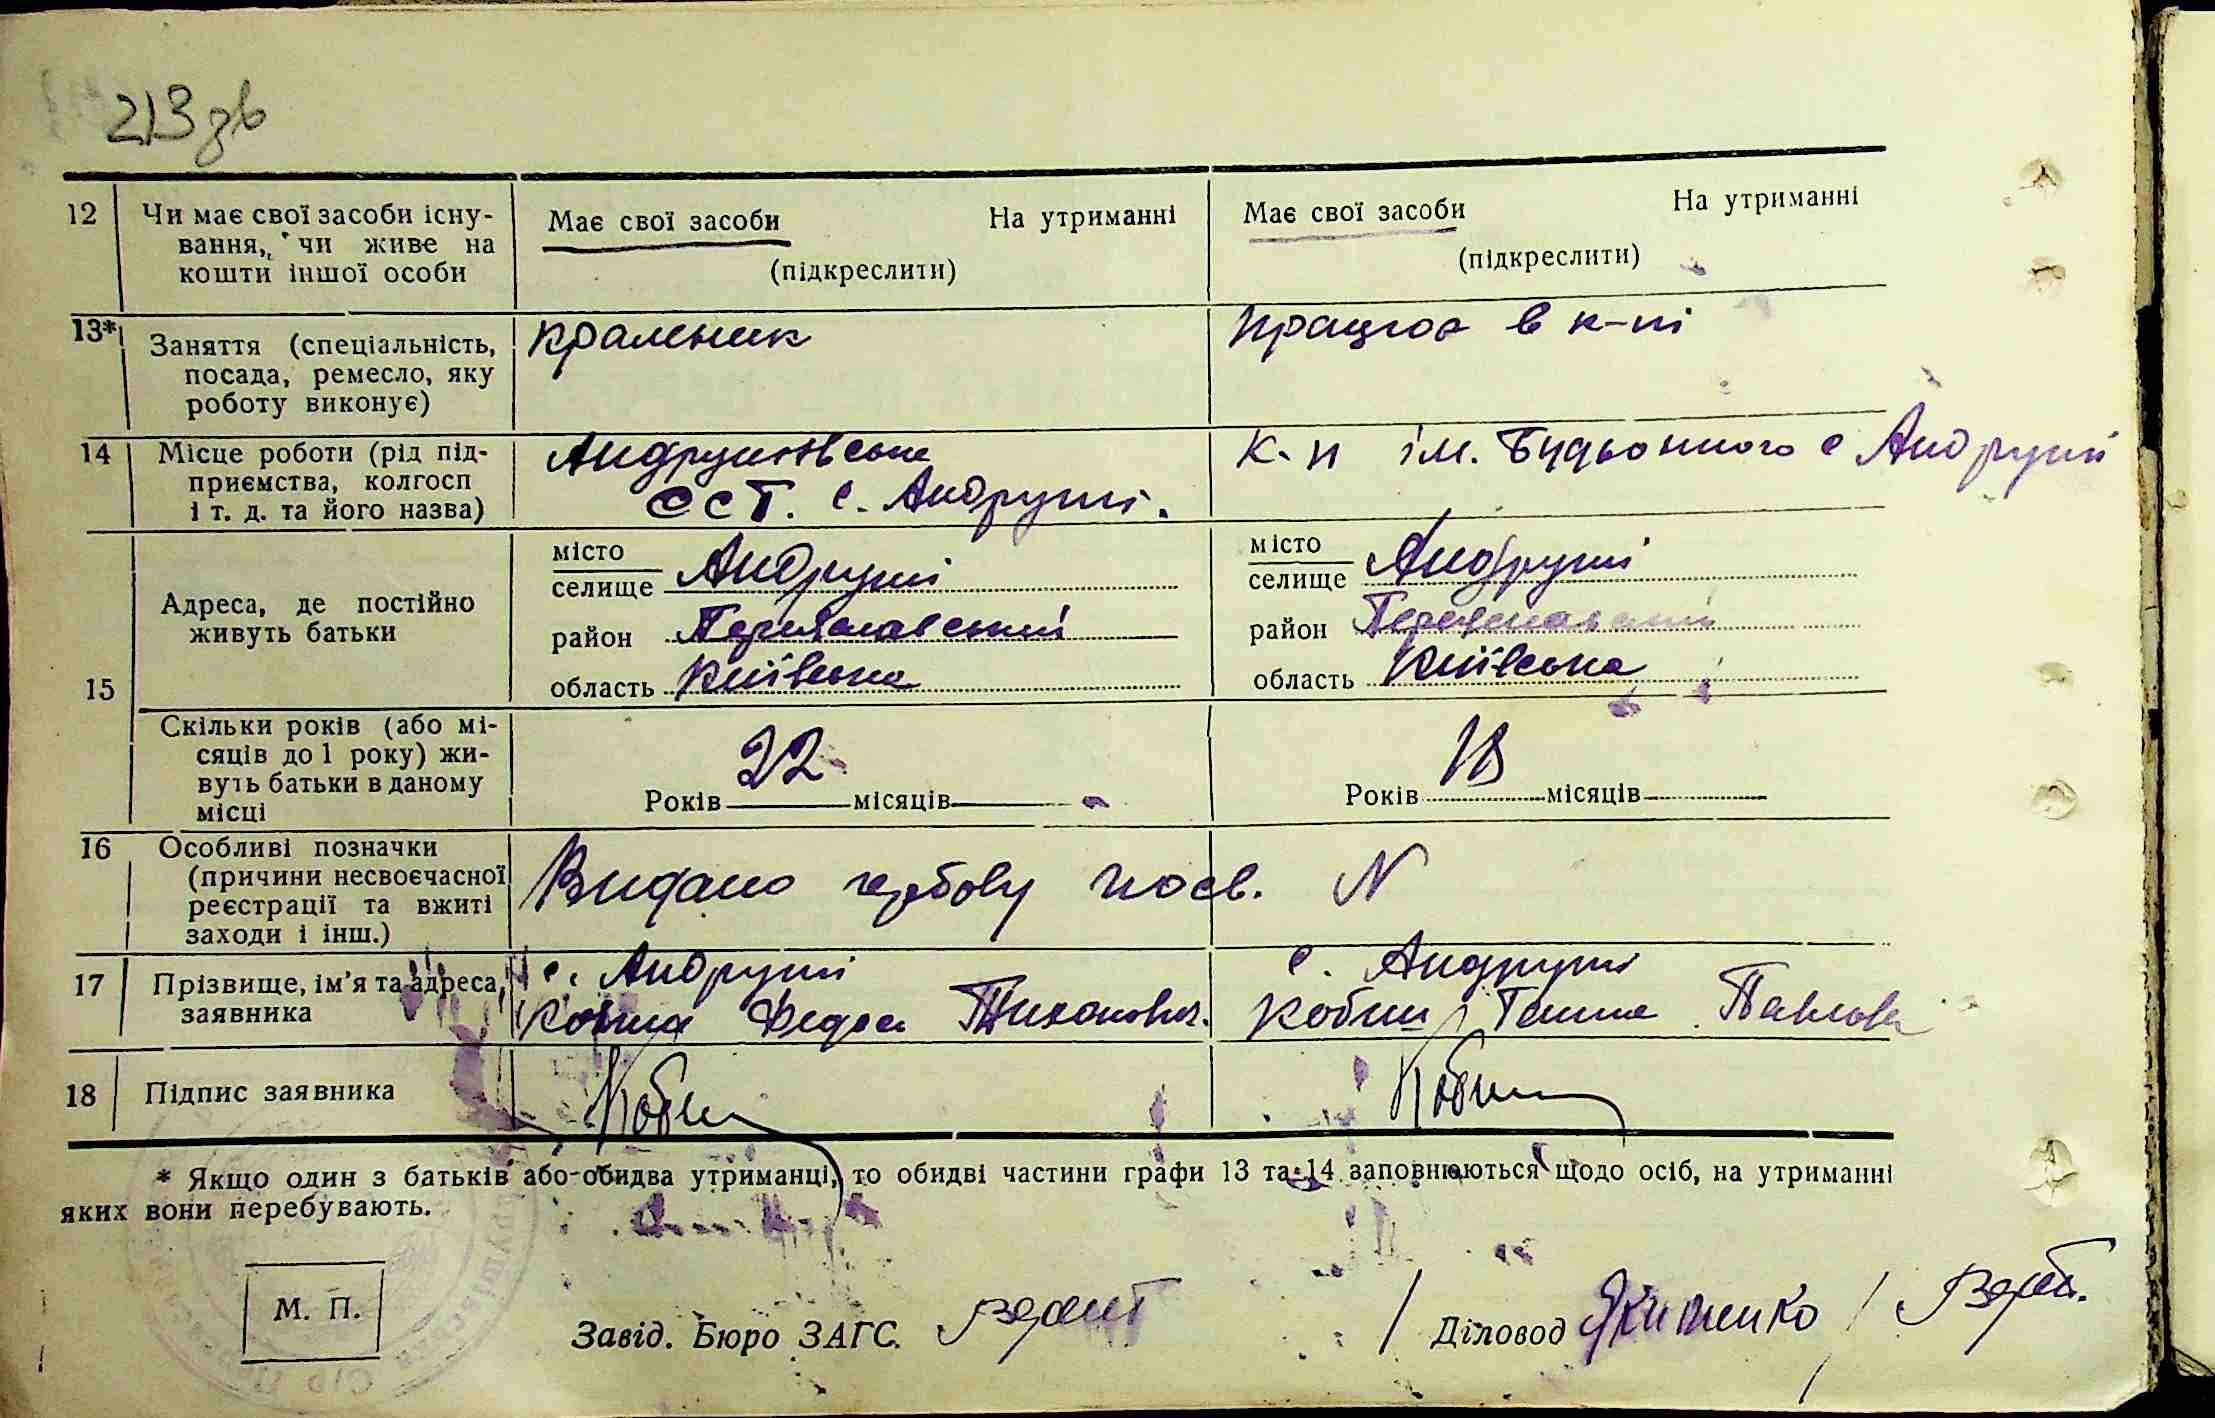 213 зв
12 Чи має свої засоби існу-
вання, чи живе на
кошти іншої особи
Має свої засоби На утриманні
(підкреслити)
Має свої засоби На утриманні
(підкреслити)
13* Заняття (спеціальність,
посада, ремесло, яку
роботу виконує)
крамник
працює в к-пі
14 Місце роботи (рід під-
приємства, колгосп
і т. д. та його назва)
Андрушівське
ССТ. с. Андруші.
К-п ім. Будьонного с Андруші
15 Адреса, де постійно
живуть батьки
місто
селище Андруші
район Переяславський
область Київська
місто
селище Андруші
район Переяславський
область Київська
Скільки років (або мі-
сяців до 1 року) жи-
вуть батьки в даному
місці
22
Років місяців
18
Років місяців
16 Особливі позначки
(причини несвоєчасної
реєстрації та вжиті
заходи і інш.)
Видано гербову посв. N
17 Прізвище, ім'я та адреса
заявника
с. Андруші
Кобиш Федос Тихонович.
с. Андруші
Кобиш Ганна Павлова
18 Підпис заявника
Кобиш
Кобиш
* Якщо один з батьків або обидва утриманці, то обидві частини графи 13 та 14 заповнюються щодо осіб, на утриманні
яких вони перебувають.
М. П.
Завід. Бюро ЗАГС.
Діловод Якименко